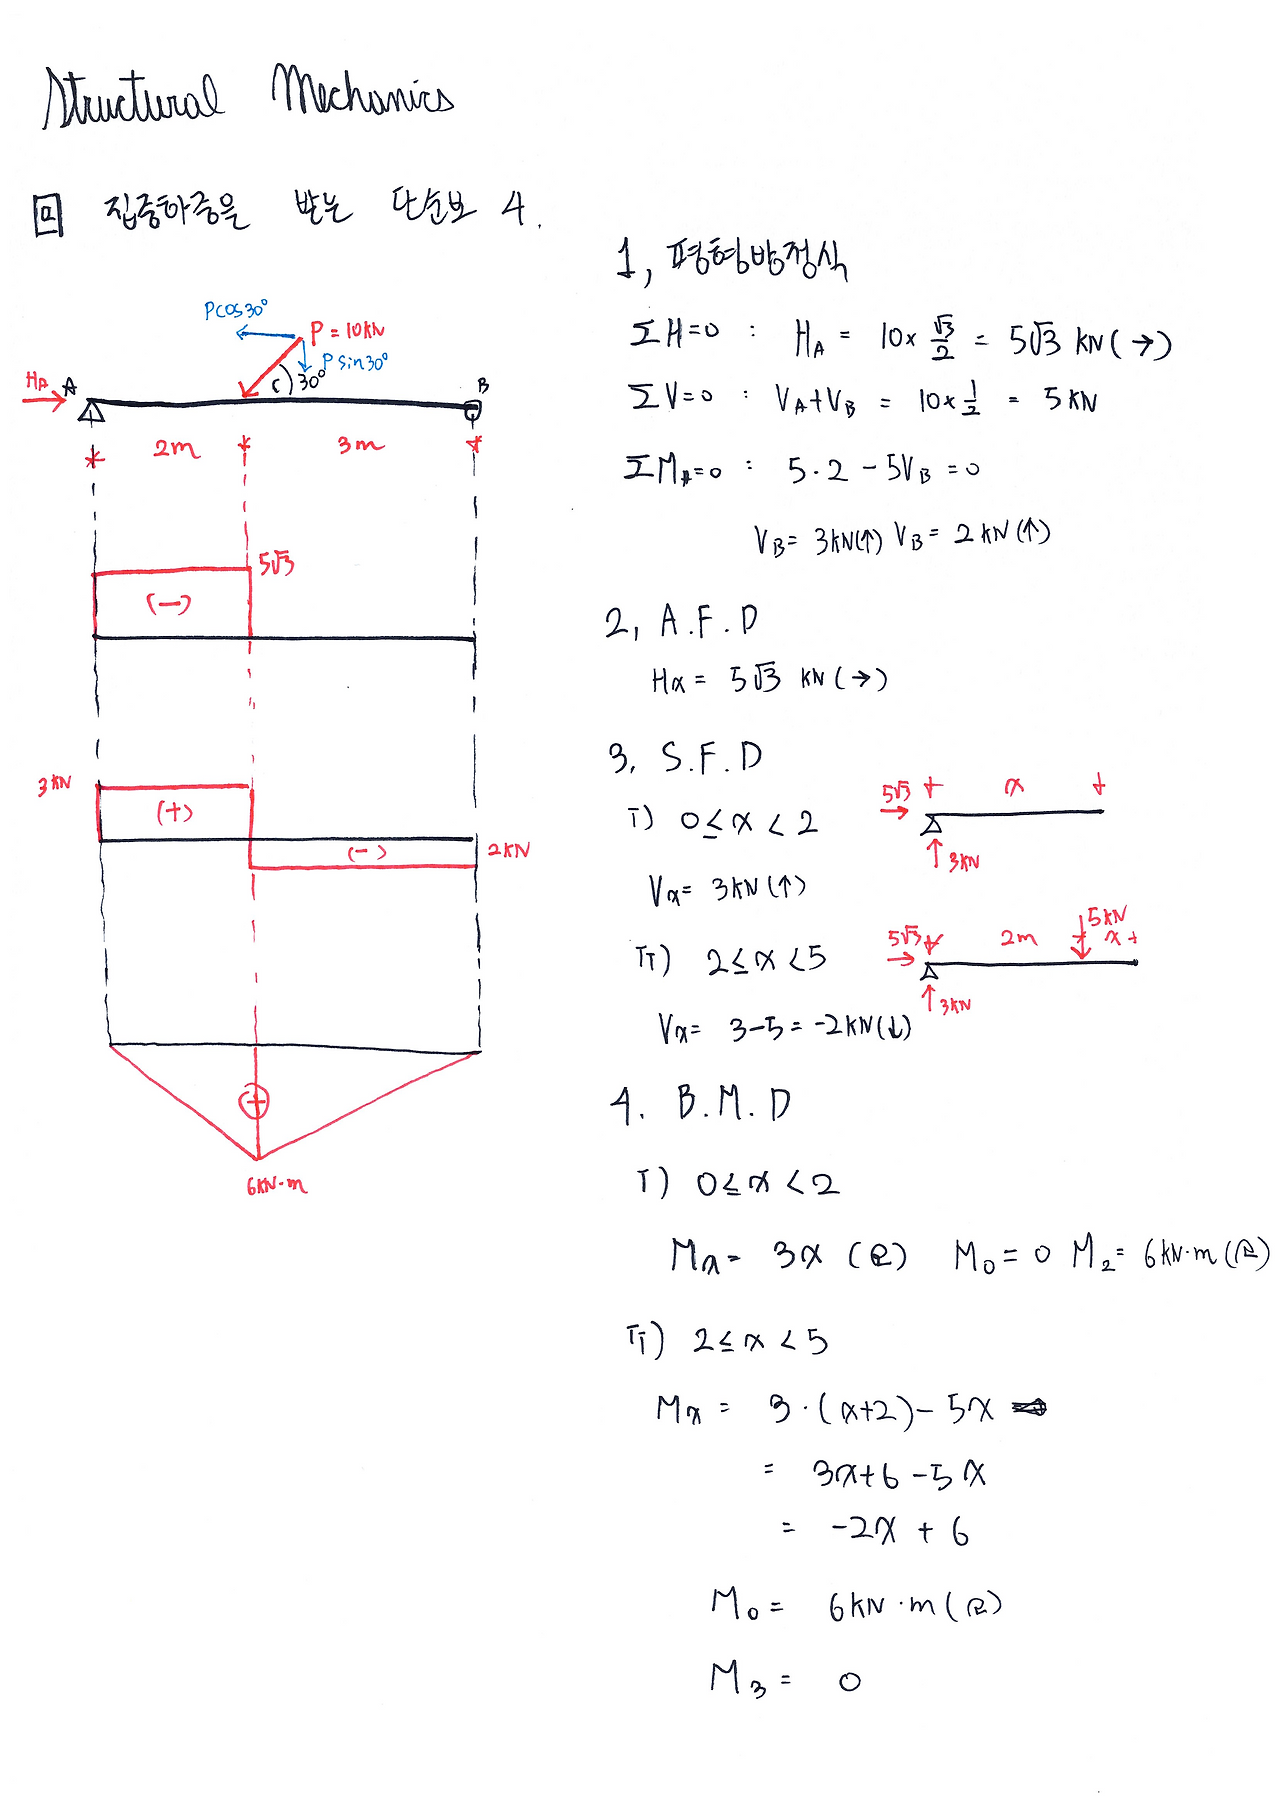 Structural Mechanics
ㅁ 집중하중을 받는 단순보 4.
Pcos30°
P = 10kN
Psin30°
HA
A
C
30°
B
2m
3m
5√3
(-)
3kN
(+)
(-)
2kN
+
6kN·m
1, 평형방정식
ΣH=0 : HA = 10× √3/2 = 5√3 kN (→)
ΣV=0 : VA+VB = 10× 1/2 = 5kN
ΣMA=0 : 5·2 - 5VB = 0
VB= 3kN(↑) VB= 2kN(↑)
2, A.F.D
Hx = 5√3 kN (→)
3, S.F.D
i) 0≤x<2
5√3
x
3kN
Vx= 3kN(↑)
ii) 2≤x<5
5√3
2m
5kN
x
3kN
Vx= 3-5= -2kN(↓)
4. B.M.D
i) 0≤x<2
Mx= 3x (↻) M0= 0 M2= 6kN·m(↻)
ii) 2≤x<5
Mx = 3·(x+2)-5x
= 3x+6-5x
= -2x+6
M0= 6kN·m(↻)
M3= 0